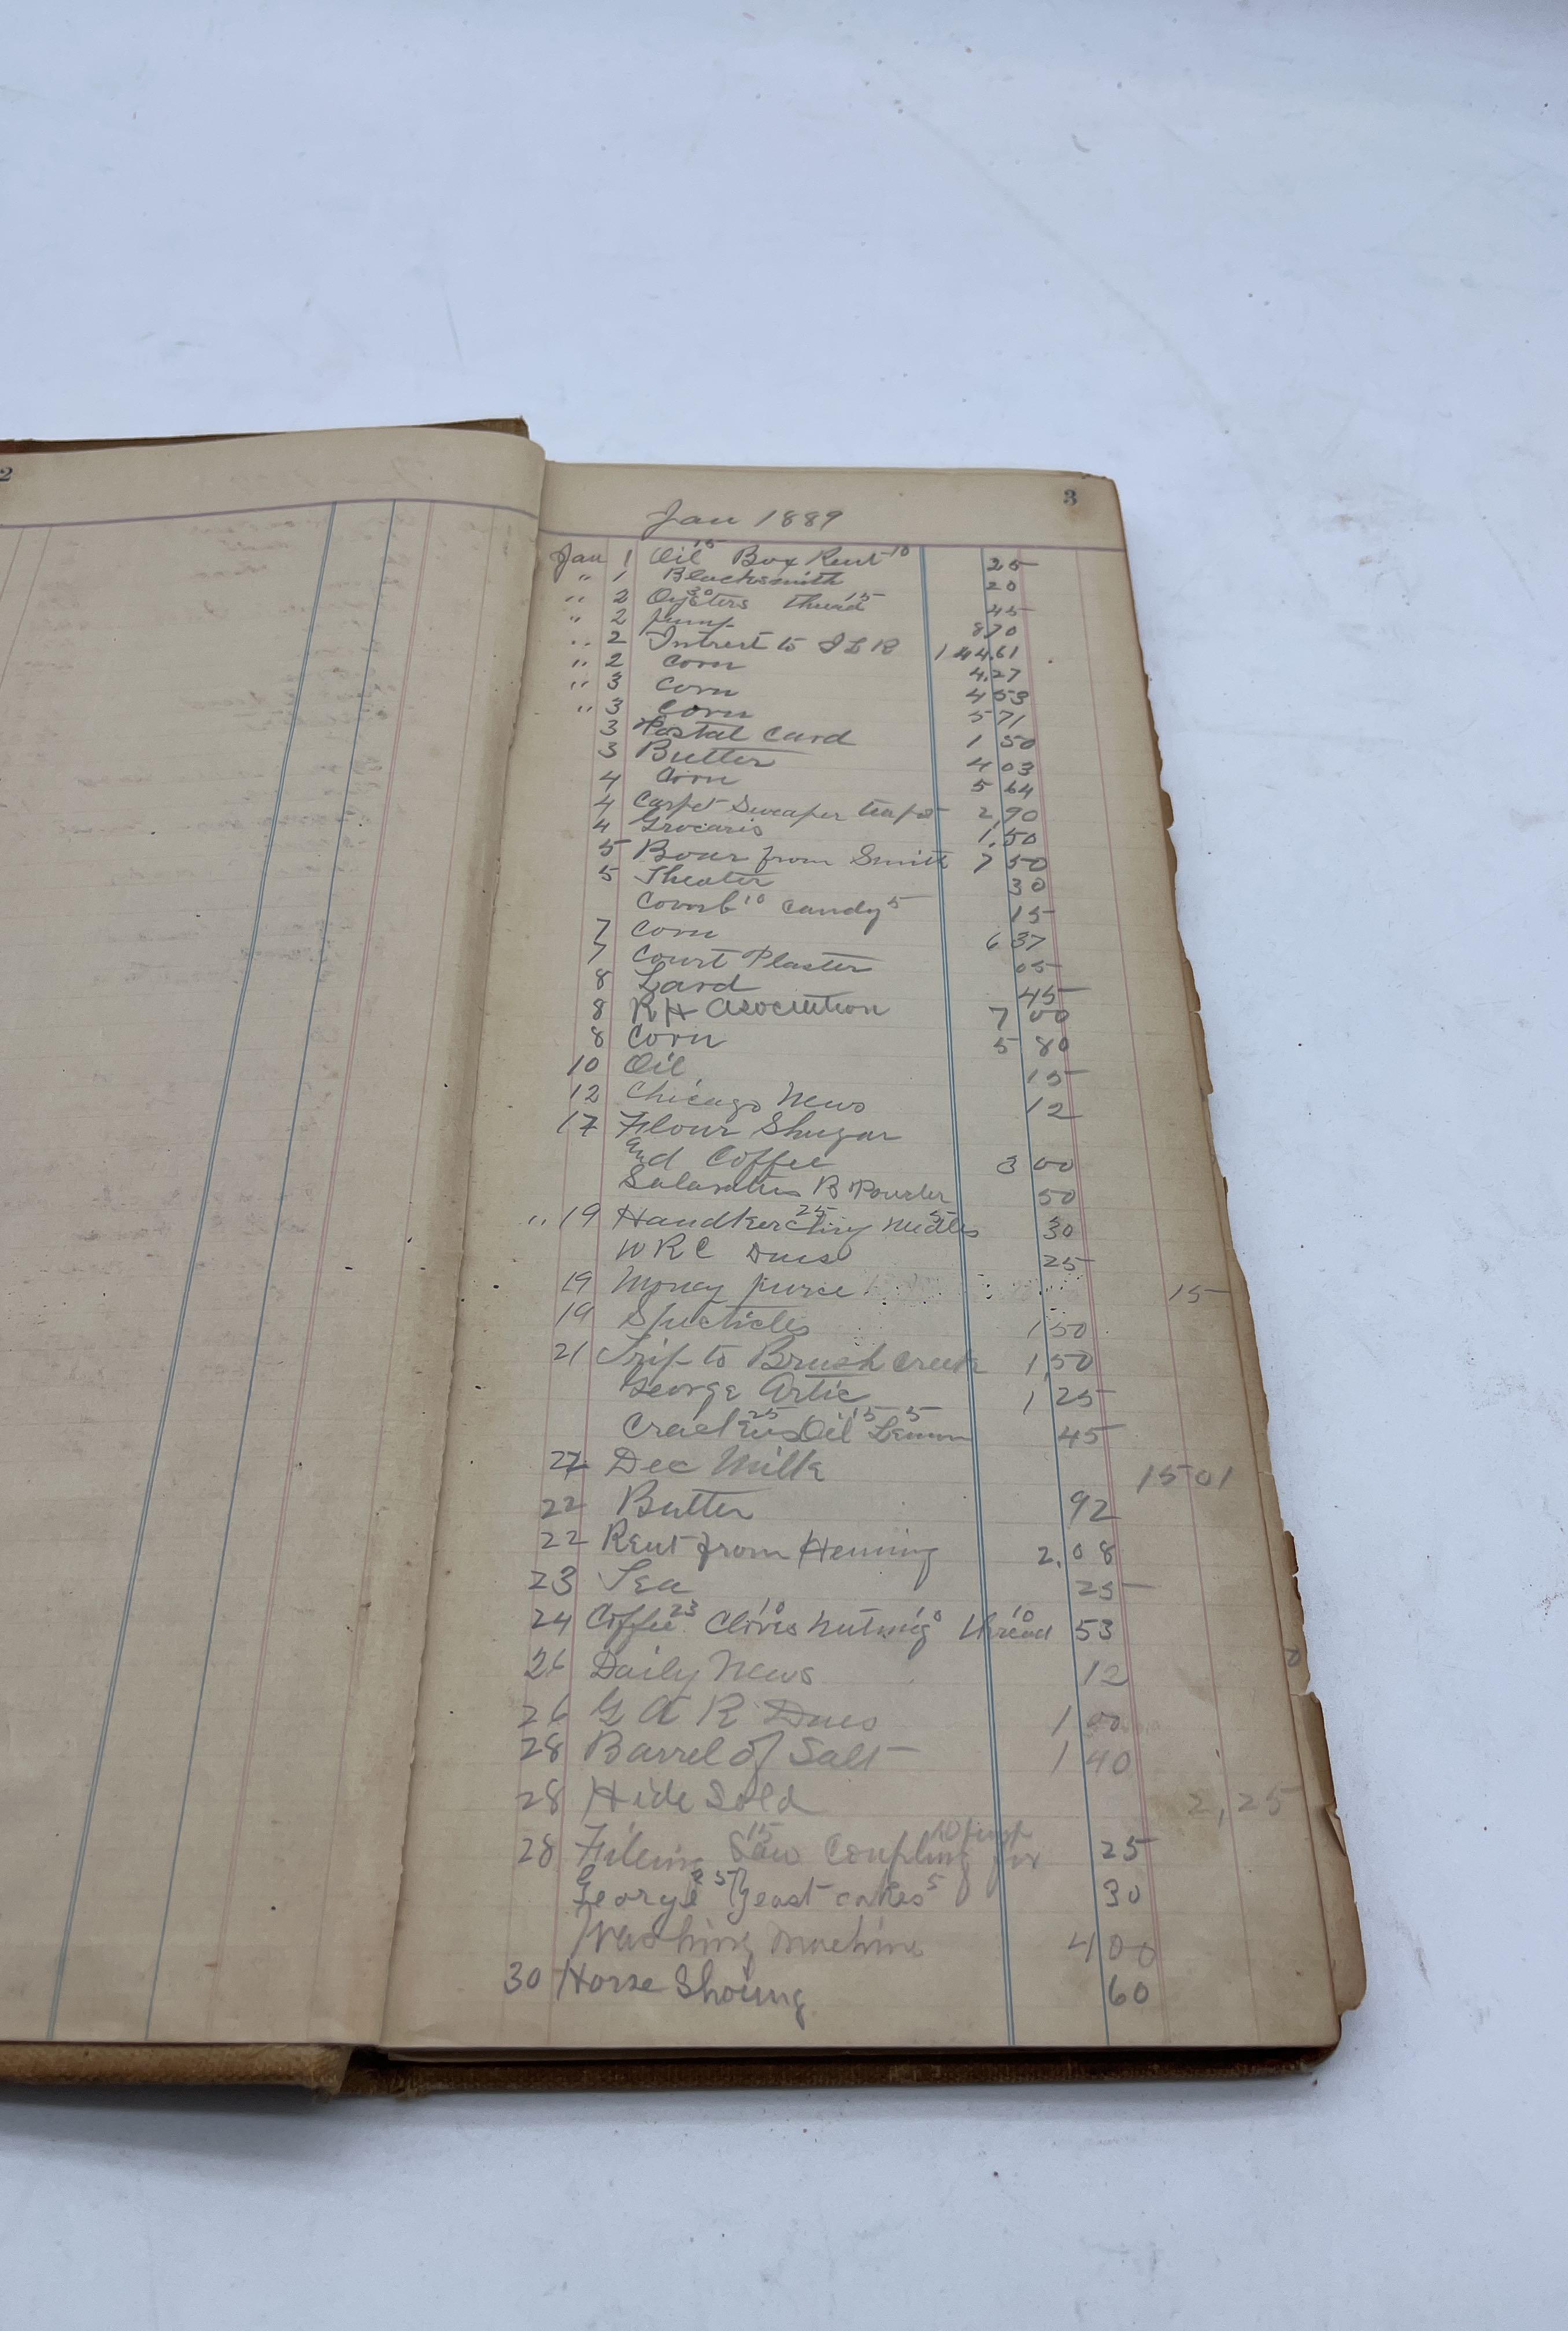 2
3
Jan 1889
Jan 1 Oil 15 Box Rent 10 25
" 1 Blacksmith 20
" 2 Oysters 30 thread 15 45
" 2 pump 8 70
" 2 Intrest to I L R 144.61
" 2 Corn 4.27
" 3 Corn 4 53
" 3 Corn 5 71
3 Postal Card 1 50
3 Butter 4 03
4 Corn 5 64
4 Carpet Sweaper 2,90
4 Grocaris 1.50
5 Boar from Smith 7 50
5 Theater 30
Comb 10 Candy 5 15
7 Corn 6 37
7 Court Plaster 05
8 Lard 45
8 R H Asociation 7 00
8 Corn 5 80
10 Oil 15
12 Chicago News 12
17 Flour Shugar
And Coffee 3 00
Salaratus B Powder 50
" 19 Handkerching 25 Nedles 5 30
W R C Dues 25
19 Money purse 15
19 Specticles 1 50
21 Trip to Brush Creek 1,50
George Artic 1 25
Crackers 25 Oil 15 Lemon 5 45
22 Dec Milk 15 01
22 Butter 92
22 Rent from Henning 2.08
23 Tea 25
24 Coffee 23 Cloves 10 Nutmeg 10 thread 10 53
26 Daily News 12
26 G A R Dues 1 00
28 Barrel of Salt 1 40
28 Hide Sold 2,25
28 Fileing Saw 15 Coupling 10 for pump 25
George 25 Yeast cakes 5 30
Washing Machine 4 00
30 Horse Shoing 60